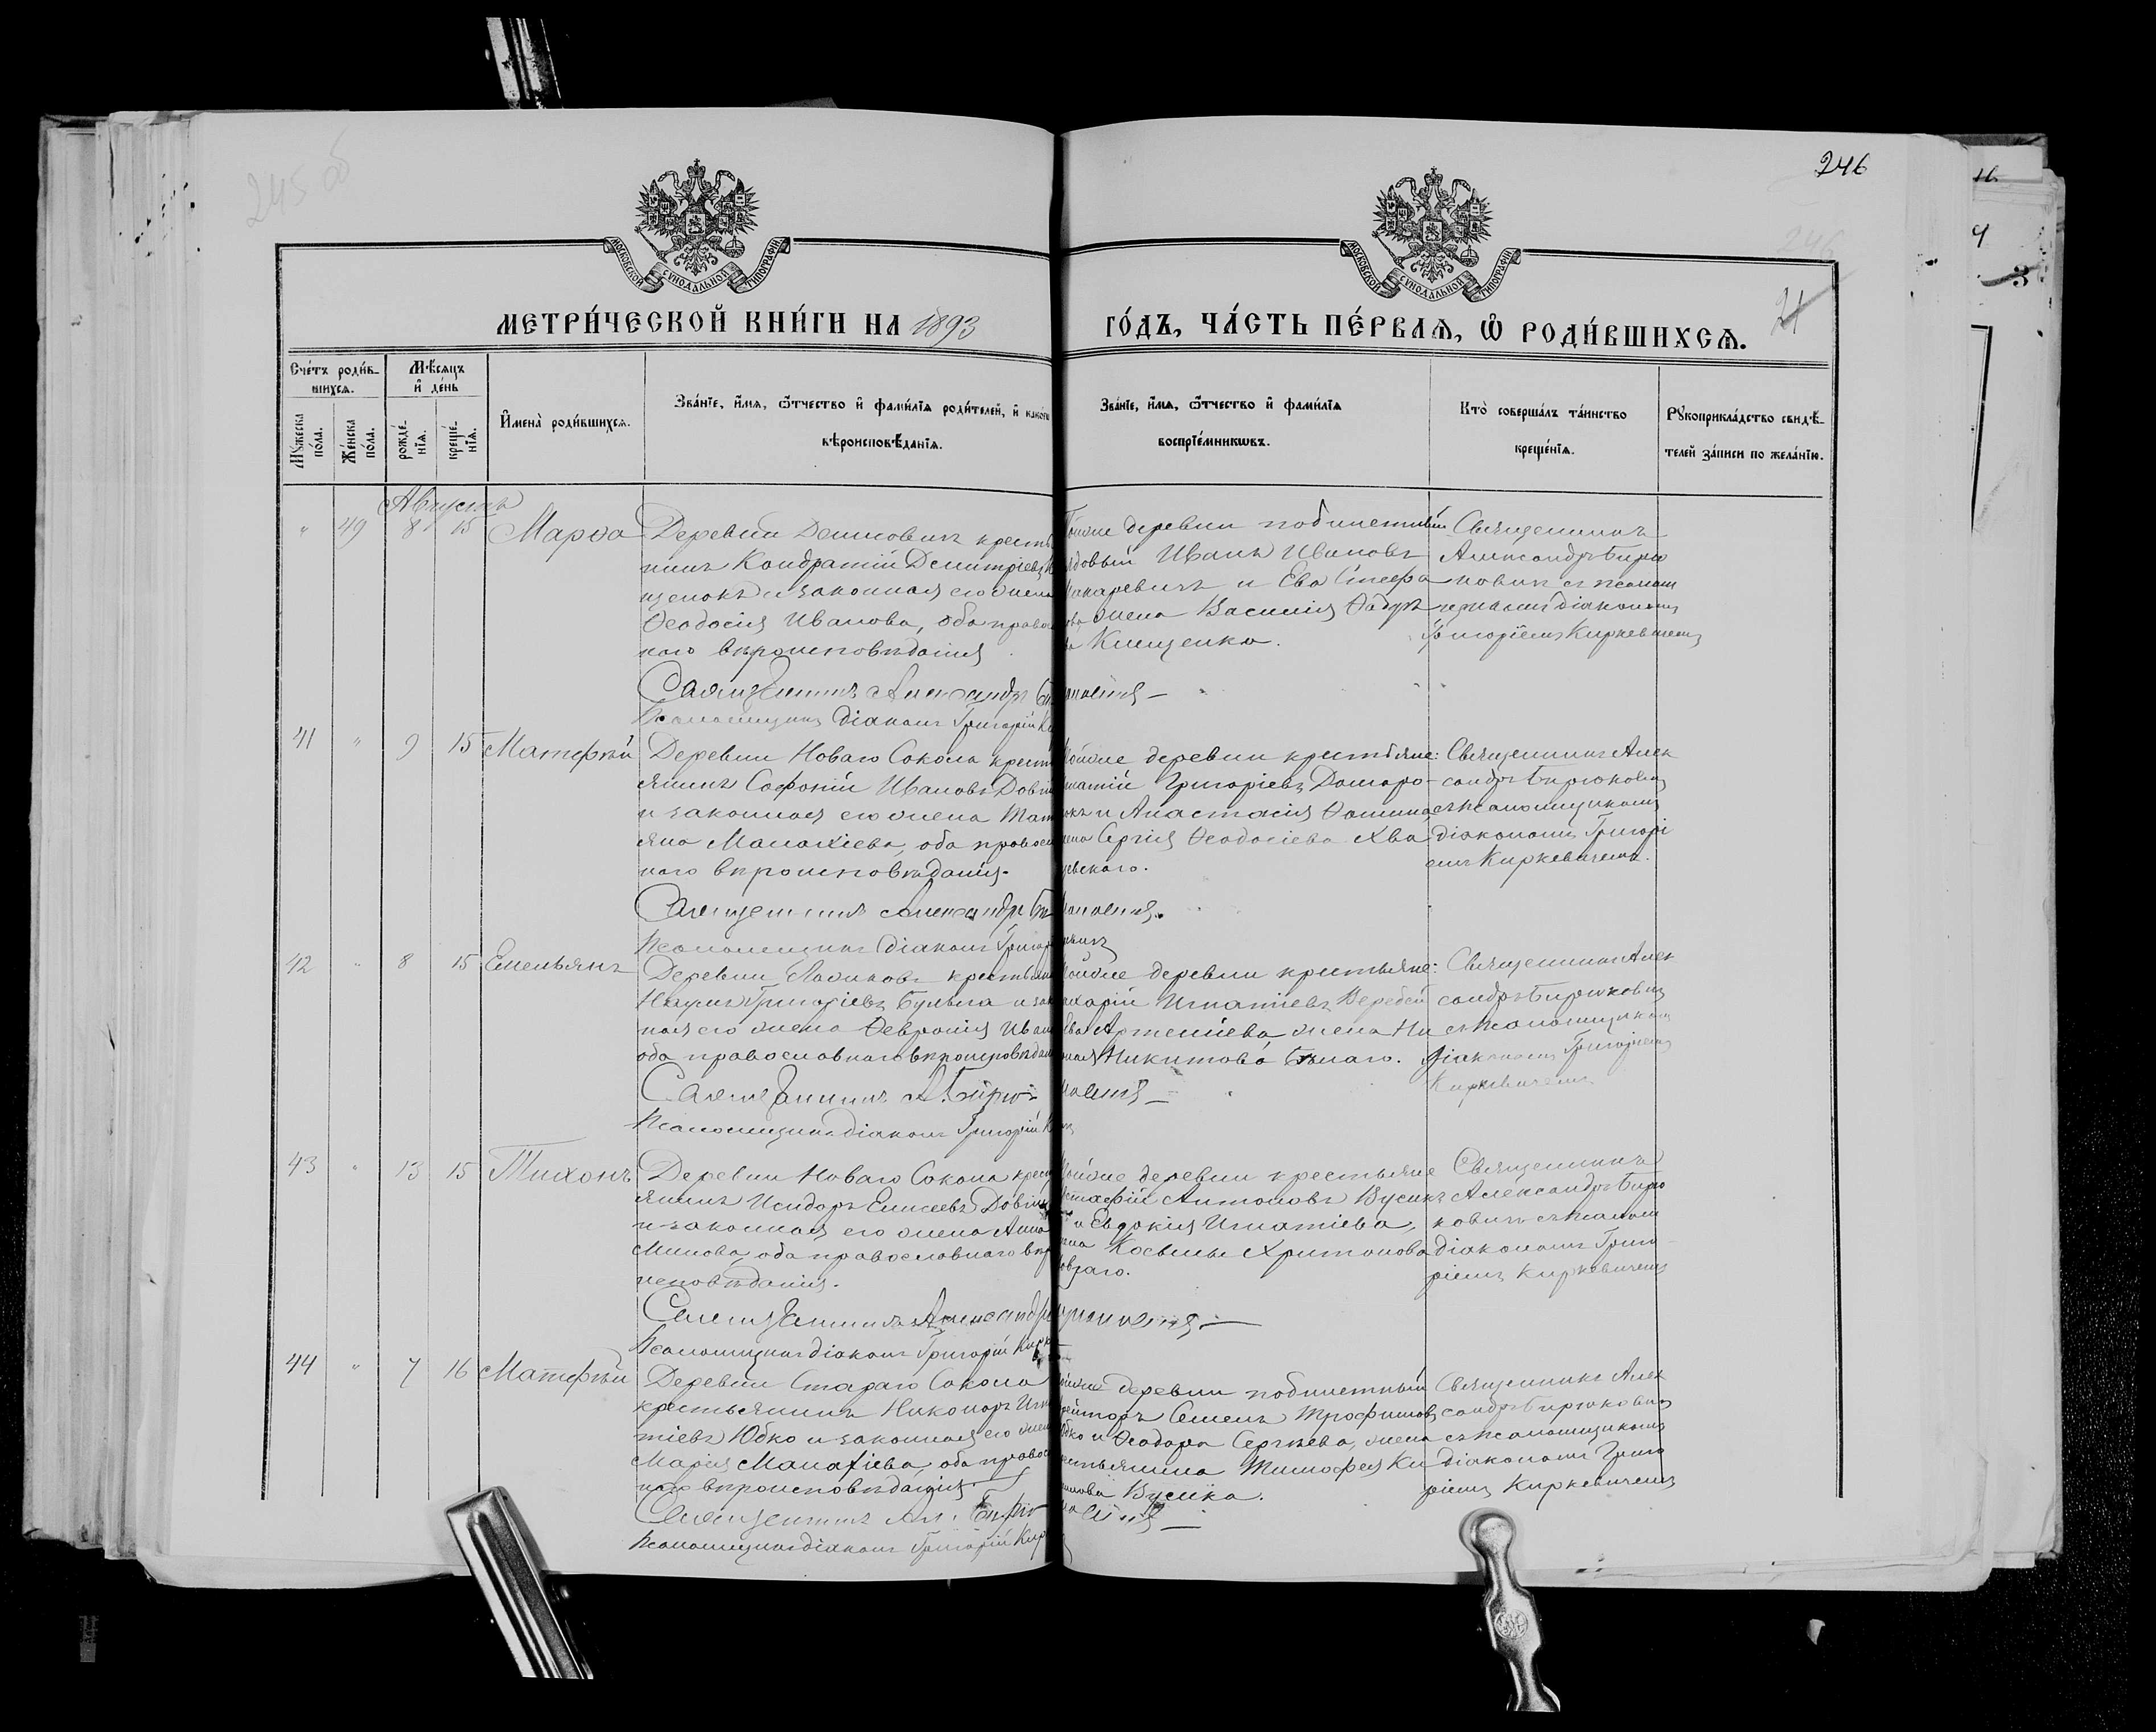 245 об
246
246
21
МОСКОВСКОЙ СУНОДАЛЬНОЙ ТИПОГРАФІИ
МОСКОВСКОЙ СУНОДАЛЬНОЙ ТИПОГРАФІИ
МЕТРИ́ЧЕСКОЙ КНИ́ГИ НА 1893
ГО́ДЪ, ЧА́СТЬ ПЕ́РВАѦ, Ѡ҆ РОДИ́ВШИХСѦ.
Сче́тъ роди́в-
шихсѧ.
Мꙋ́жеска по́ла.
Же́нска по́ла.
Мѣ́сѧцъ
и҆ де́нь
рожде́-
нїѧ.
креще́-
нїѧ.
И҆мена̀ роди́вшихсѧ.
Зва́нїе, и҆́мѧ, ѻ҆́тчество и҆ фами́лїѧ роди́телей, и҆ како́гѡ
вѣроисповѣ́данїѧ.
Зва́нїе, и҆́мѧ, ѻ҆́тчество и҆ фами́лїѧ
воспрїе́мникѡвъ.
Кто̀ соверша́лъ та́инство
креще́нїѧ.
Рꙋкоприкла́дство свидѣ́-
телей за́писи по жела́нїю.
Августъ
" 49 8 15 Марѳа
Деревни Денисовичъ кресть
нинъ Кондратій Димитріевъ
щенокъ и законная его жена
Ѳеодосія Иванова, оба правос
наго вѣроисповѣданія
Священникъ Александръ Би
Псаломщикъ діаконъ Григорій Ки
Тойже деревни
Иванъ Ивановъ
Макаревичъ и Ева Стефа
ова жена Василія Ѳадѣе
Клещенка.
рюковичъ
Священникъ
Александръ Бирю
ковичъ съ псалом
щикомъ діакономъ
Григоріемъ Киркевичемъ
41 " 9 15 Матѳей
Деревни Новаго Сокола крест
янинъ Софоній Ивановъ Довг
и законная его жена Тат
яна Малахіева, оба правосл
наго вѣроисповѣданія.
Священникъ Александръ Би
Псаломщикъ діаконъ Григорі
тойже деревни крестьяне:
Григоріевъ
и Анастасія Ѳомина
жена Сергія Ѳеодосіева Хва
евскаго.
рюковичъ.
Священникъ Алек
сандръ Бирюковичъ
съ псаломщикомъ
діакономъ Григорі
емъ Киркевичемъ.
42 " 8 15 Емельянъ
Деревни крестьяни
Наумъ Григоріевъ Булыга и зак
ная его жена Ѳевронія Иван
оба православнаго вѣроисповѣдан
Священникъ А. Бирю
Псаломщикъ діаконъ Григорій К
тойже деревни крестьяне:
ахарій Игнатіевъ Веребей
Ева Артеміева, жена Ни
Никитова Бѣлаго.
ковичъ
Священникъ Алек
сандръ Бирюковичъ
съ псаломщикомъ
діакономъ Григоріемъ
Киркевичемъ
43 " 13 15 Тихонъ
Деревни Новаго Сокола крест
янинъ Исидоръ Елисеевъ Довг
и законная его жена Анна
Минова, оба православнаго вѣр
исповѣданія.
Священникъ Александръ
Псаломщикъ діаконъ Григорій Кирк
тойже деревни крестьяне
Евстафій Антоновъ Бусикъ
и Евдокія Игнатіева,
жена Косьмы Харитонова
рюковичъ
Священникъ
Александръ Бирю
ковичъ съ псалом
діакономъ Григо
ріемъ Киркевичемъ
44 " 7 16 Матѳей
Деревни Стараго Сокола
крестьянинъ Никоноръ Игна
тіевъ Юбко и законная его жена
Марія Малахіева, оба правос
наго вѣроисповѣданія
Священникъ Ал. Бирю
Псаломщикъ діаконъ Григорій Кир
тойже деревни
Семенъ Трофимовъ
Юбко и Ѳеодора Сергѣева, жена
крестьянина Тимофея Ки
Бусика.
ковичъ
Священникъ Алек
сандръ Бирюковичъ
съ псаломщикомъ
діакономъ Григо
ріемъ Киркевичемъ